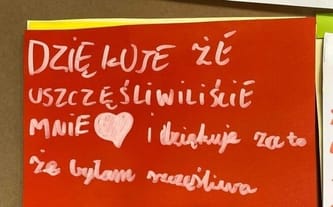 DZIĘKUJE ŻE
USZCZĘŚLIWILIŚCIE
MNIE ♥ i dziękuje za to
że byłam szczęśliwa